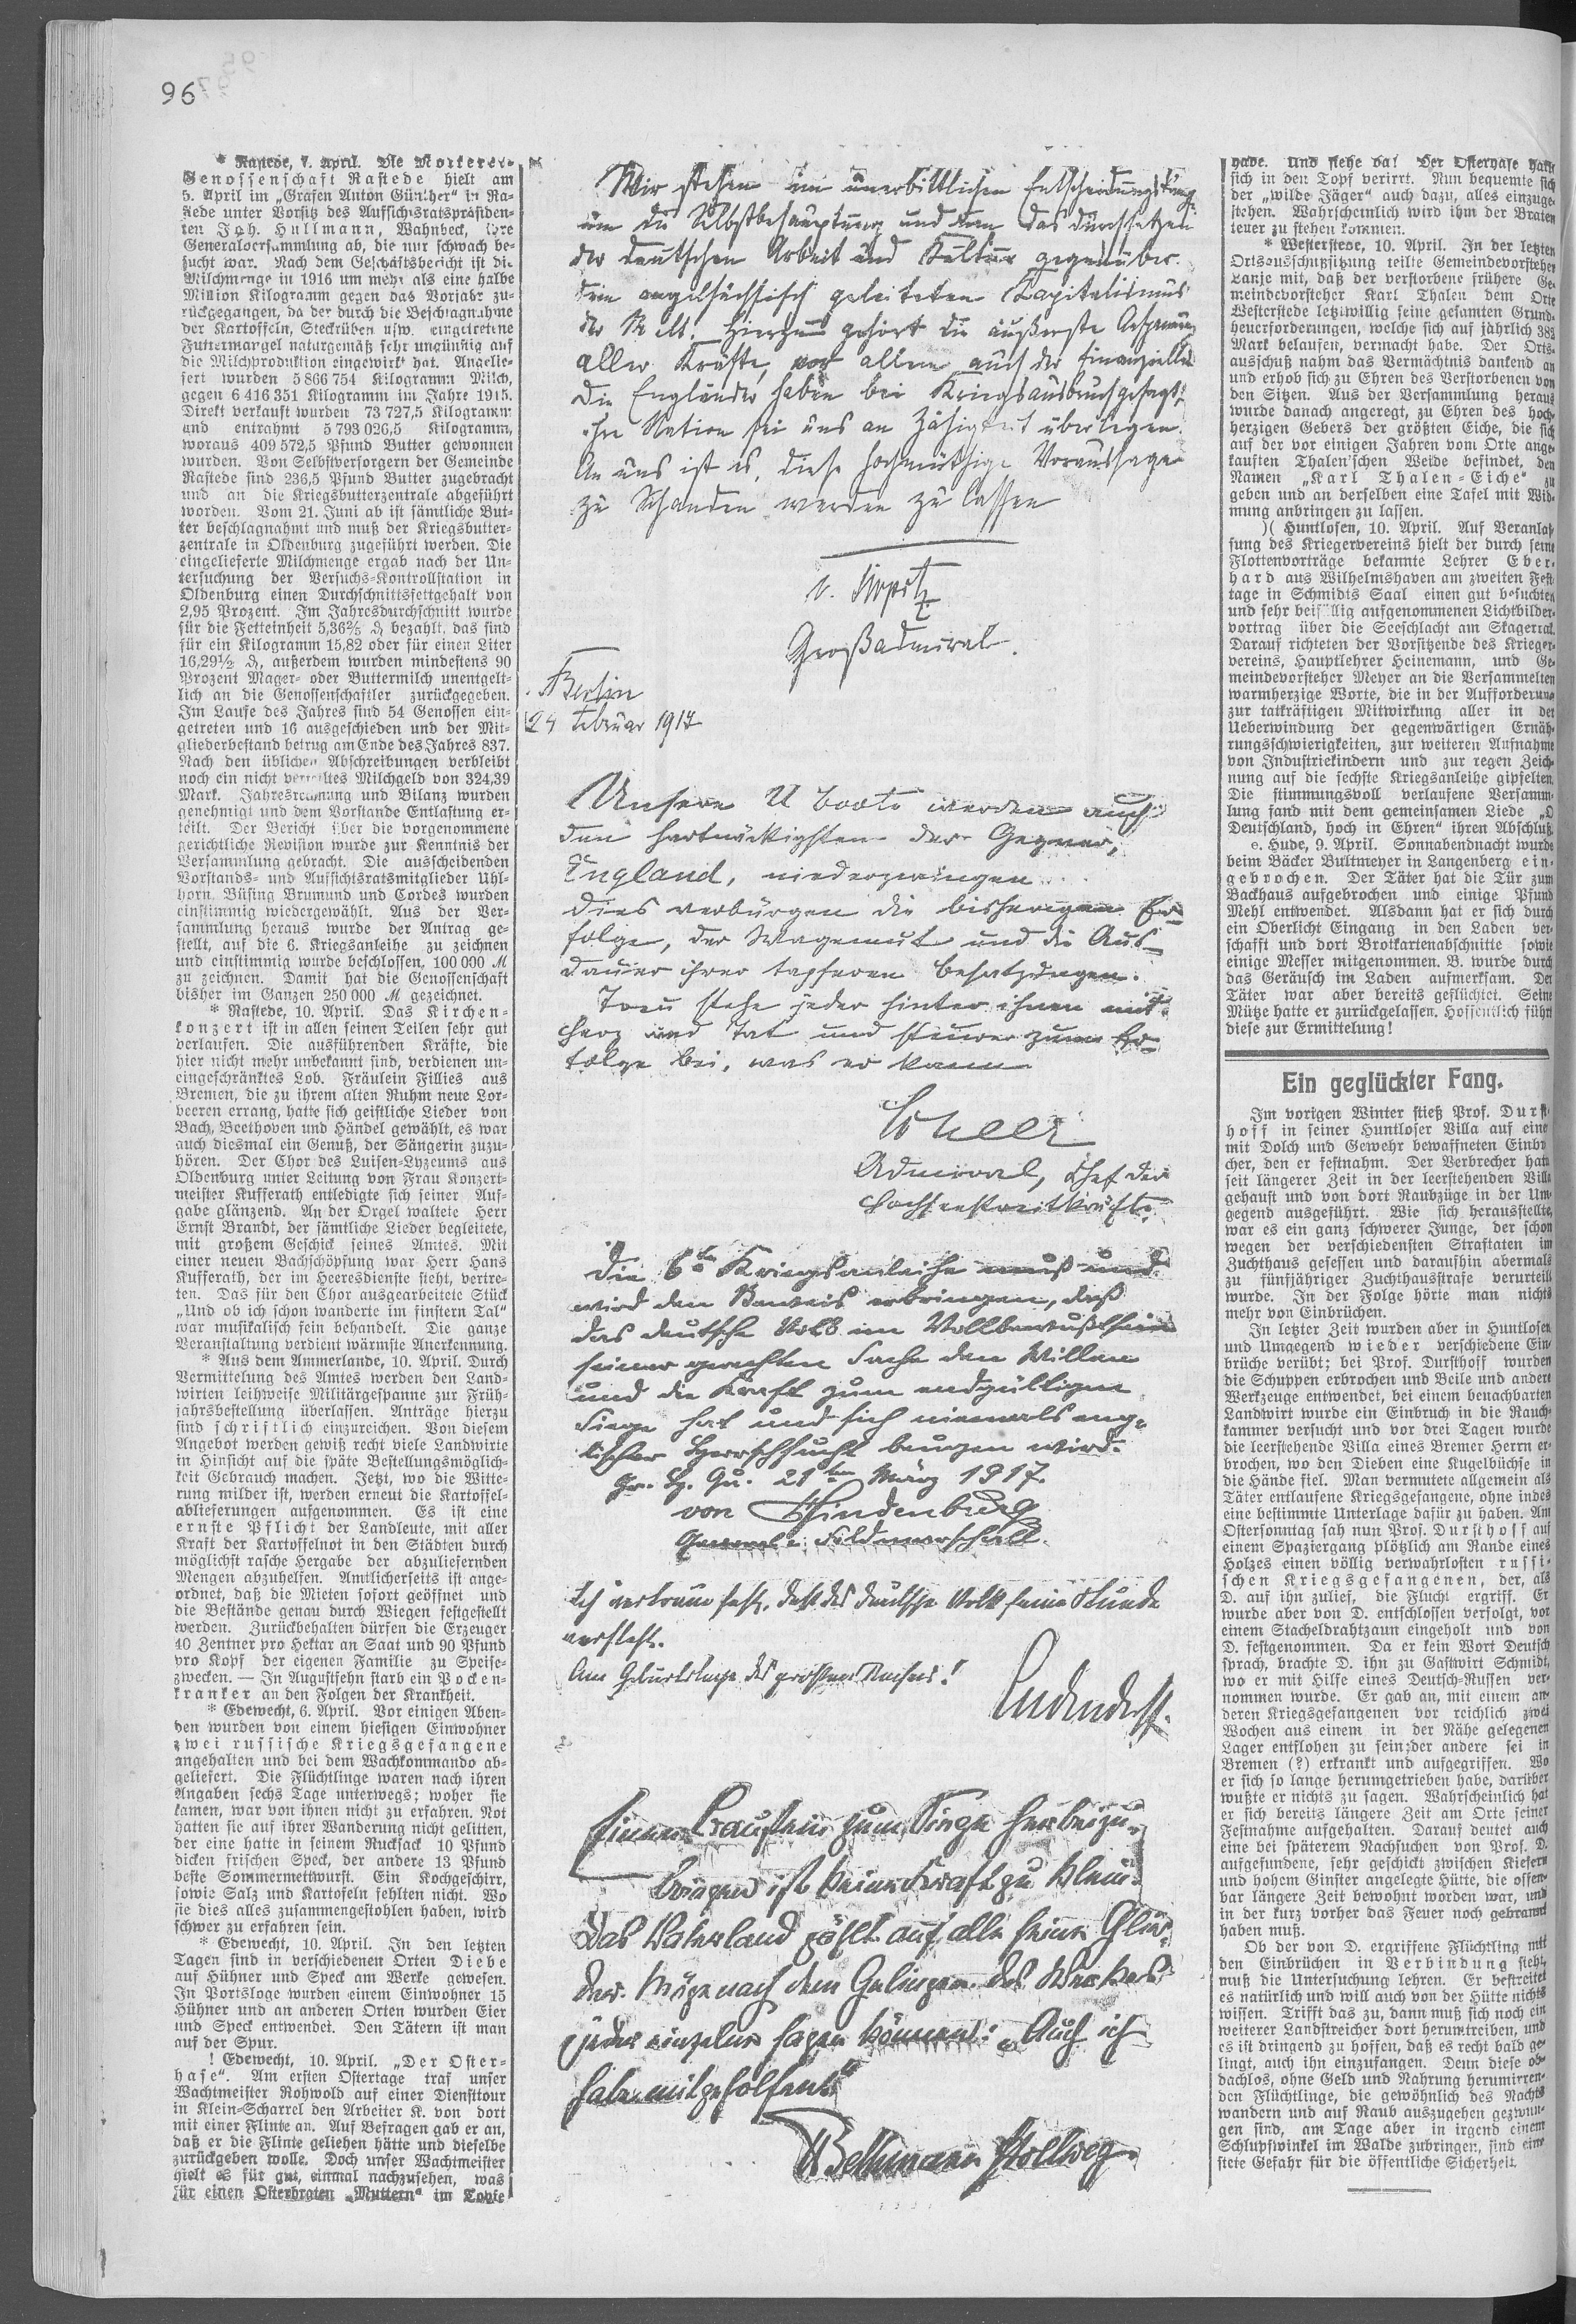 96
* Rastede, 7. April. Die Molkerei-
Genossenschaft Rastede hielt am
5. April im „Grafen Anton Günther“ in Ra-
stede unter Vorsitz des Aufsichtsratspräsiden-
ten Joh. Hullmann, Wahnbeck, ihre
Generalversammlung ab, die nur schwach be-
sucht war. Nach dem Geschäftsbericht ist die
Milchmenge in 1916 um mehr als eine halbe
Million Kilogramm gegen das Vorjahr zu-
rückgegangen, da der durch die Beschlagnahme
der Kartoffeln, Steckrüben usw. eingetretene
Futtermangel naturgemäß sehr ungünstig auf
die Milchproduktion eingewirkt hat. Angelie-
fert wurden 5 866 754 Kilogramm Milch,
gegen 6 416 351 Kilogramm im Jahre 1915.
Direkt verkauft wurden 73 727,5 Kilogramm
und entrahmt 5 793 026,5 Kilogramm,
woraus 409 572,5 Pfund Butter gewonnen
wurden. Von Selbstversorgern der Gemeinde
Rastede sind 236,5 Pfund Butter zugebracht
und an die Kriegsbutterzentrale abgeführt
worden. Vom 21. Juni ab ist sämtliche But-
ter beschlagnahmt und muß der Kriegsbutter-
zentrale in Oldenburg zugeführt werden. Die
eingelieferte Milchmenge ergab nach der Un-
tersuchung der Versuchs-Kontrollstation in
Oldenburg einen Durchschnittsfettgehalt von
2,95 Prozent. Im Jahresdurchschnitt wurde
für die Fetteinheit 5,36⅖ ₰ bezahlt, das sind
für ein Kilogramm 15,82 oder für einen Liter
16,29½ ₰, außerdem wurden mindestens 90
Prozent Mager- oder Buttermilch unentgelt-
lich an die Genossenschaftler zurückgegeben.
Im Laufe des Jahres sind 54 Genossen ein-
getreten und 16 ausgeschieden und der Mit-
gliederbestand betrug am Ende des Jahres 837.
Nach den üblichen Abschreibungen verbleibt
noch ein nicht verteiltes Milchgeld von 324,39
Mark. Jahresrechnung und Bilanz wurden
genehmigt und dem Vorstande Entlastung er-
teilt. Der Bericht über die vorgenommene
gerichtliche Revision wurde zur Kenntnis der
Versammlung gebracht. Die ausscheidenden
Vorstands- und Aufsichtsratsmitglieder Uhl-
horn, Büsing Brumund und Cordes wurden
einstimmig wiedergewählt. Aus der Ver-
sammlung heraus wurde der Antrag ge-
stellt, auf die 6. Kriegsanleihe zu zeichnen
und einstimmig wurde beschlossen, 100 000 M
zu zeichnen. Damit hat die Genossenschaft
bisher im Ganzen 250 000 M gezeichnet.
* Rastede, 10. April. Das Kirchen-
konzert ist in allen seinen Teilen sehr gut
verlaufen. Die ausführenden Kräfte, die
hier nicht mehr unbekannt sind, verdienen un-
eingeschränktes Lob. Fräulein Fillies aus
Bremen, die zu ihrem alten Ruhm neue Lor-
beeren errang, hatte sich geistliche Lieder von
Bach, Beethoven und Händel gewählt, es war
auch diesmal ein Genuß, der Sängerin zuzu-
hören. Der Chor des Luisen-Lyzeums aus
Oldenburg unter Leitung von Frau Konzert-
meister Kufferath entledigte sich seiner Auf-
gabe glänzend. An der Orgel waltete Herr
Ernst Brandt, der sämtliche Lieder begleitete,
mit großem Geschick seines Amtes. Mit
einer neuen Bachschöpfung war Herr Hans
Kufferath, der im Heeresdienste steht, vertre-
ten. Das für den Chor ausgearbeitete Stück
„Und ob ich schon wanderte im finstern Tal“
war musikalisch fein behandelt. Die ganze
Veranstaltung verdient wärmste Anerkennung.
* Aus dem Ammerlande, 10. April. Durch
Vermittelung des Amtes werden den Land-
wirten leihweise Militärgespanne zur Früh-
jahrsbestellung überlassen. Anträge hierzu
sind schriftlich einzureichen. Von diesem
Angebot werden gewiß recht viele Landwirte
in Hinsicht auf die späte Bestellungsmöglich-
keit Gebrauch machen. Jetzt, wo die Witte-
rung milder ist, werden erneut die Kartoffel-
ablieferungen aufgenommen. Es ist eine
ernste Pflicht der Landleute, mit aller
Kraft der Kartoffelnot in den Städten durch
möglichst rasche Hergabe der abzuliefernden
Mengen abzuhelfen. Amtlicherseits ist ange-
ordnet, daß die Mieten sofort geöffnet und
die Bestände genau durch Wiegen festgestellt
werden. Zurückbehalten dürfen die Erzeuger
40 Zentner pro Hektar an Saat und 90 Pfund
pro Kopf der eigenen Familie zu Speise-
zwecken. — In Augustfehn starb ein Pocken-
kranker an den Folgen der Krankheit.
* Edewecht, 6. April. Vor einigen Aben-
den wurden von einem hiesigen Einwohner
zwei russische Kriegsgefangene
angehalten und bei dem Wachkommando ab-
geliefert. Die Flüchtlinge waren nach ihren
Angaben sechs Tage unterwegs; woher sie
kamen, war von ihnen nicht zu erfahren. Not
hatten sie auf ihrer Wanderung nicht gelitten,
der eine hatte in seinem Rucksack 10 Pfund
dicken frischen Speck, der andere 13 Pfund
beste Sommermettwurst. Ein Kochgeschirr,
sowie Salz und Kartofeln fehlten nicht. Wo
sie dies alles zusammengestohlen haben, wird
schwer zu erfahren sein.
* Edewecht, 10. April. In den letzten
Tagen sind in verschiedenen Orten Diebe
auf Hühner und Speck am Werke gewesen.
In Portsloge wurden einem Einwohner 15
Hühner und an anderen Orten wurden Eier
und Speck entwendet. Den Tätern ist man
auf der Spur.
! Edewecht, 10. April. „Der Oster-
hase“. Am ersten Ostertage traf unser
Wachtmeister Rohwold auf einer Diensttour
in Klein-Scharrel den Arbeiter K. von dort
mit einer Flinte an. Auf Befragen gab er an,
daß er die Flinte geliehen hätte und dieselbe
zurückgeben wolle. Doch unser Wachtmeister
hielt es für gut, einmal nachzusehen, was
für einen Osterbraten „Muttern“ im Topfe
Wir stehen im unerbittlichen Entscheidungskampf
um die Selbstbehauptung und das durchsetzen
der deutschen Arbeit und Kultur gegenüber
dem angelsächsisch geleiteten Kapitalismus
der Welt. Hierzu gehört die äußerste Anspannung
aller Kräfte, vor allem auch der finanziellen
Die Engländer haben bei Kriegsausbruch gesagt,
ihre Nation sei uns an Zähigkeit überlegen.
An uns ist es, diese hochmüthige Voraussage
zu Schanden werden zu lassen
v. Tirpitz
Großadmiral.
Berlin
24 Februar 1917
Unsere U boote werden auch
den hartnäckigsten der Gegner,
England, niederzwingen.
Dies verbürgen die bisherigen Er-
folge, der Wagemut und die Aus-
dauer ihrer tapferen Besatzungen.
Treu stehe jeder hinter ihnen mit
Herz und Tat und steuere zum Er-
folge bei, was er kann
Scheer
Admiral, Chef der
Hochseestreitkräfte.
Die 6te Kriegsanleihe muß und
wird den Beweis erbringen, daß
das deutsche Volk im Vollbewußtsein
seiner gerechten Sache den Willen
und die Kraft zum endgültigen
Siege hat und sich niemals eng-
lischer Herrschsucht beugen wird.
Gr. H. Qu. 21ten März 1917.
von Hindenburg
General-Feldmarschall.
Ich vertraue fest, daß das deutsche Volk seine Stunde
versteht.
Am Geburtstage des großen Kaisers!
Ludendorff.
Einen Baustein zum Siege herbeizu-
bringen ist keine Kraft zu klein.
Das Vaterland zählt auf alle seine Glie-
der. Möge nach dem Gelingen des Werkes
jeder einzelne sagen können: „Auch ich
habe mitgeholfen!“
v Bethmann Hollweg.
habe. Und siehe da! Der Osterhase hatte
sich in den Topf verirrt. Nun bequemte sich
der „wilde Jäger“ auch dazu, alles einzuge-
stehen. Wahrscheinlich wird ihm der Braten
teuer zu stehen kommen.
* Westerstede, 10. April. In der letzten
Ortsausschußsitzung teilte Gemeindevorsteher
Lanje mit, daß der verstorbene frühere Ge-
meindevorsteher Karl Thalen dem Orte
Westerstede letzwillig seine gesamten Grund-
heuerforderungen, welche sich auf jährlich 382
Mark belaufen, vermacht habe. Der Orts-
ausschuß nahm das Vermächtnis dankend an
und erhob sich zu Ehren des Verstorbenen von
den Sitzen. Aus der Versammlung heraus
wurde danach angeregt, zu Ehren des hoch-
herzigen Gebers der größten Eiche, die sich
auf der vor einigen Jahren vom Orte ange-
kauften Thalen'schen Weide befindet, den
Namen „Karl Thalen-Eiche“ zu
geben und an derselben eine Tafel mit Wid-
mung anbringen zu lassen.
)( Huntlosen, 10. April. Auf Veranlas-
sung des Kriegervereins hielt der durch seine
Flottenvorträge bekannte Lehrer Eber-
hard aus Wilhelmshaven am zweiten Fest-
tage in Schmidts Saal einen gut besuchten
und sehr beifällig aufgenommenen Lichtbilder-
vortrag über die Seeschlacht am Skagerrak.
Darauf richteten der Vorsitzende des Krieger-
vereins, Hauptlehrer Heinemann, und Ge-
meindevorsteher Meyer an die Versammelten
warmherzige Worte, die in der Aufforderung
zur tatkräftigen Mitwirkung aller in der
Ueberwindung der gegenwärtigen Ernäh-
rungsschwierigkeiten, zur weiteren Aufnahme
von Industriekindern und zur regen Zeich-
nung auf die sechste Kriegsanleihe gipfelten.
Die stimmungsvoll verlaufene Versamm-
lung fand mit dem gemeinsamen Liede „O
Deutschland, hoch in Ehren“ ihren Abschluß.
e. Hude, 9. April. Sonnabendnacht wurde
beim Bäcker Bultmeyer in Langenberg ein-
gebrochen. Der Täter hat die Tür zum
Backhaus aufgebrochen und einige Pfund
Mehl entwendet. Alsdann hat er sich durch
ein Oberlicht Eingang in den Laden ver-
schafft und dort Brotkartenabschnitte sowie
einige Messer mitgenommen. B. wurde durch
das Geräusch im Laden aufmerksam. Der
Täter war aber bereits geflüchtet. Seine
Mütze hatte er zurückgelassen. Hoffentlich führt
diese zur Ermittelung!
Ein geglückter Fang.
Im vorigen Winter stieß Prof. Durst-
hoff in seiner Huntloser Villa auf eine
mit Dolch und Gewehr bewaffneten Einbre-
cher, den er festnahm. Der Verbrecher hatte
seit längerer Zeit in der leerstehenden Villa
gehaust und von dort Raubzüge in der Um-
gegend ausgeführt. Wie sich herausstellte,
war es ein ganz schwerer Junge, der schon
wegen der verschiedensten Straftaten im
Zuchthaus gesessen und daraufhin abermals
zu fünfjähriger Zuchthausstrafe verurteilt
wurde. In der Folge hörte man nichts
mehr von Einbrüchen.
In letzter Zeit wurden aber in Huntlosen
und Umgegend wieder verschiedene Ein-
brüche verübt; bei Prof. Dursthoff wurden
die Schuppen erbrochen und Beile und andere
Werkzeuge entwendet, bei einem benachbarten
Landwirt wurde ein Einbruch in die Rauch-
kammer versucht und vor drei Tagen wurde
die leerstehende Villa eines Bremer Herrn er-
brochen, wo den Dieben eine Kugelbüchse in
die Hände fiel. Man vermutete allgemein als
Täter entlaufene Kriegsgefangene, ohne indes
eine bestimmte Unterlage dafür zu haben. Am
Ostersonntag sah nun Prof. Dursthoff auf
einem Spaziergang plötzlich am Rande eines
Holzes einen völlig verwahrlosten russi-
schen Kriegsgefangenen, der, als
D. auf ihn zulief, die Flucht ergriff. Er
wurde aber von D. entschlossen verfolgt, vor
einem Stacheldrahtzaun eingeholt und von
D. festgenommen. Da er kein Wort Deutsch
sprach, brachte D. ihn zu Gastwirt Schmidt,
wo er mit Hilfe eines Deutsch-Russen ver-
nommen wurde. Er gab an, mit einem an-
deren Kriegsgefangenen vor reichlich zwei
Wochen aus einem in der Nähe gelegenen
Lager entflohen zu sein; der andere sei in
Bremen (?) erkrankt und aufgegriffen. Wo
er sich so lange herumgetrieben habe, darüber
wußte er nichts zu sagen. Wahrscheinlich hat
er sich bereits längere Zeit am Orte seiner
Festnahme aufgehalten. Darauf deutet auch
eine bei späterem Nachsuchen von Prof. D.
aufgefundene, sehr geschickt zwischen Kiefern
und hohem Ginster angelegte Hütte, die offen-
bar längere Zeit bewohnt worden war, und
in der kurz vorher das Feuer noch gebrannt
haben muß.
Ob der von D. ergriffene Flüchtling mit
den Einbrüchen in Verbindung steht,
muß die Untersuchung lehren. Er bestreitet
es natürlich und will auch von der Hütte nichts
wissen. Trifft das zu, dann muß sich noch ein
weiterer Landstreicher dort herumtreiben, und
es ist dringend zu hoffen, daß es recht bald ge-
lingt, auch ihn einzufangen. Denn diese ob-
dachlos, ohne Geld und Nahrung herumirren-
den Flüchtlinge, die gewöhnlich des Nachts
wandern und auf Raub auszugehen gezwun-
gen sind, am Tage aber in irgend einem
Schlupfwinkel im Walde zubringen, sind eine
stete Gefahr für die öffentliche Sicherheit.